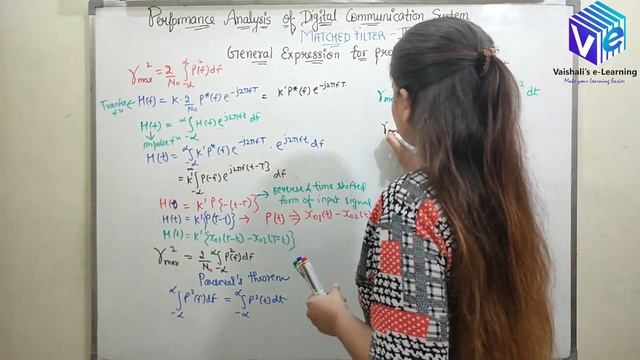 Performance Analysis of Digital Communication System
MATCHED FILTER -
General Expression for
γ²max = 2/N₀ ∫_{-∞}^{∞} P²(f) df
Transfer fⁿ H(f) = K · 2/N₀ P*(f) e^{-j2πfT} = K' P*(f) e^{-j2πfT}
H(t) = ∫_{-∞}^{∞} H(f) e^{j2πft} df
Impulse fⁿ
H(t) = ∫_{-∞}^{∞} K' P*(f) e^{-j2πfT} · e^{j2πft} df
= K' ∫_{-∞}^{∞} P(-f) e^{j2πf(t-T)} df
H(t) = K' P{-(t-T)} → reverse & time shifted
form of input signal
H(t) = K' {P(T-t)} → P(t) ⇒ x₀₁(t) - x₀₂(t)
H(t) = K' {x₀₁(T-t) - x₀₂(T-t)}
γ²max = 2/N₀ ∫_{-∞}^{∞} P²(f) df
Parseval's theorem
∫_{-∞}^{∞} P²(f) df = ∫_{-∞}^{∞} P²(t) dt
² dt
Vaishali's e-Learning
Make your Learning Easier